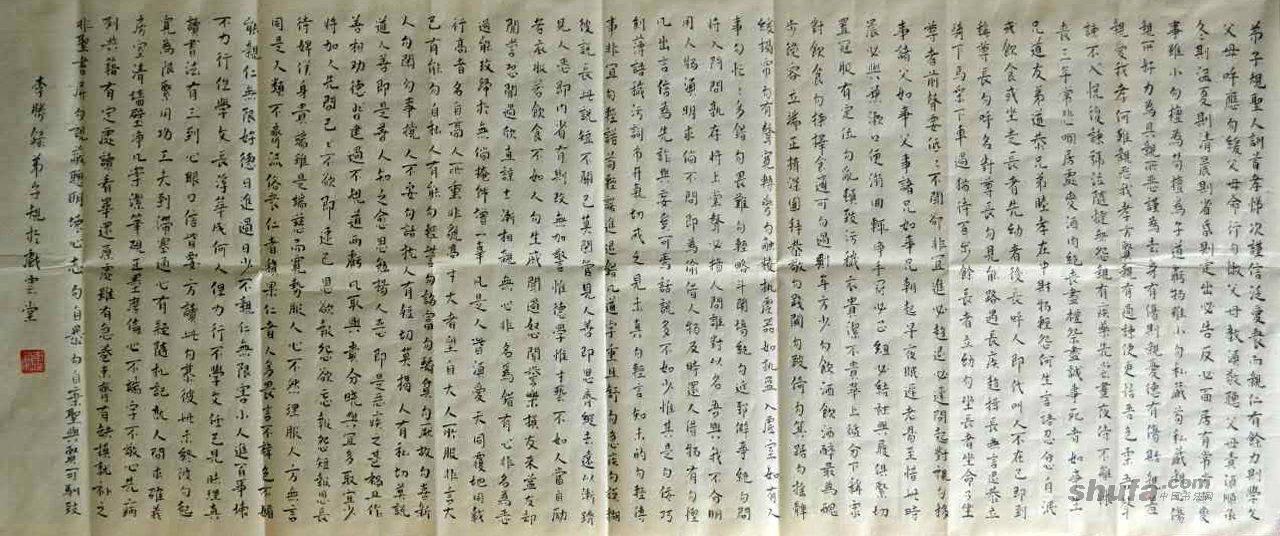 弟子規聖人訓首孝悌次謹信泛愛眾而親仁有餘力則學文
父母呼應勿緩父母命行勿懶父母教須敬聽父母責須順承
冬則溫夏則凊晨則省昏則定出必告反必面居有常業無變
事雖小勿擅為苟擅為子道虧物雖小勿私藏苟私藏親心傷
親所好力為具親所惡謹為去身有傷貽親憂德有傷貽親羞
親愛我孝何難親惡我孝方賢親有過諫使更怡吾色柔吾聲
諫不入悅復諫號泣隨撻無怨親有疾藥先嘗晝夜侍不離床
喪三年常悲咽居處變酒肉絕喪盡禮祭盡誠事死者如事生
兄道友弟道恭兄弟睦孝在中財物輕怨何生言語忍忿自泯
或飲食或坐走長者先幼者後長呼人即代叫人不在己即到
稱尊長勿呼名對尊長勿見能路遇長疾趨揖長無言退恭立
騎下馬乘下車過猶待百步餘長者立幼勿坐長者坐命乃坐
尊長前聲要低低不聞卻非宜進必趨退必遲問起對視勿移
事諸父如事父事諸兄如事兄朝起早夜眠遲老易至惜此時
晨必盥兼漱口便溺回輒淨手冠必正紐必結襪與履俱緊切
置冠服有定位勿亂頓致污穢衣貴潔不貴華上循分下稱家
對飲食勿揀擇食適可勿過則年方少勿飲酒飲酒醉最為醜
步從容立端正揖深圓拜恭敬勿踐閾勿跛倚勿箕踞勿搖髀
緩揭簾勿有聲寬轉彎勿觸棱執虛器如執盈入虛室如有人
事勿忙忙多錯勿畏難勿輕略鬥鬧場絕勿近邪僻事絕勿問
將入門問孰存將上堂聲必揚人問誰對以名吾與我不分明
用人物須明求倘不問即為偷借人物及時還人借物有勿慳
凡出言信為先詐與妄奚可焉話說多不如少惟其是勿佞巧
刻薄語穢污詞市井氣切戒之見未真勿輕言知未的勿輕傳
事非宜勿輕諾苟輕諾進退錯凡道字重且舒勿急疾勿模糊
彼說長此說短不關己莫閒管見人善即思齊縱去遠以漸躋
見人惡即內省有則改無加警惟德學惟才藝不如人當自勵
若衣服若飲食不如人勿生戚聞過怒聞譽樂損友來益友卻
聞譽恐聞過欣直諒士漸相親無心非名為錯有心非名為惡
過能改歸於無倘掩飾增一辜凡是人皆須愛天同覆地同載
行高者名自高人所重非貌高才大者望自大人所服非言大
己有能勿自私人有能勿輕訾勿諂富勿驕貧勿厭故勿喜新
人不閒勿事攪人不安勿話擾人有短切莫揭人有私切莫說
道人善即是善人知之愈思勉揚人惡即是惡疾之甚禍且作
善相勸德皆建過不規道兩虧凡取與貴分曉與宜多取宜少
將加人先問己己不欲即速已恩欲報怨欲忘報怨短報恩長
待婢僕身貴端雖貴端慈而寬勢服人心不然理服人方無言
同是人類不齊流俗眾仁者稀果仁者人多畏言不諱色不媚
能親仁無限好德日進過日少不親仁無限害小人進百事壞
不力行但學文長浮華成何人但力行不學文任己見昧理真
讀書法有三到心眼口信皆要方讀此勿慕彼此未終彼勿起
寬為限緊用功工夫到滯塞通心有疑隨札記就人問求確義
房室清牆壁淨几案潔筆硯正墨磨偏心不端字不敬心先病
列典籍有定處讀看畢還原處雖有急卷束齊有缺損就補之
非聖書屏勿視蔽聰明壞心志勿自暴勿自棄聖與賢可馴致
shufa.com
中国书法网